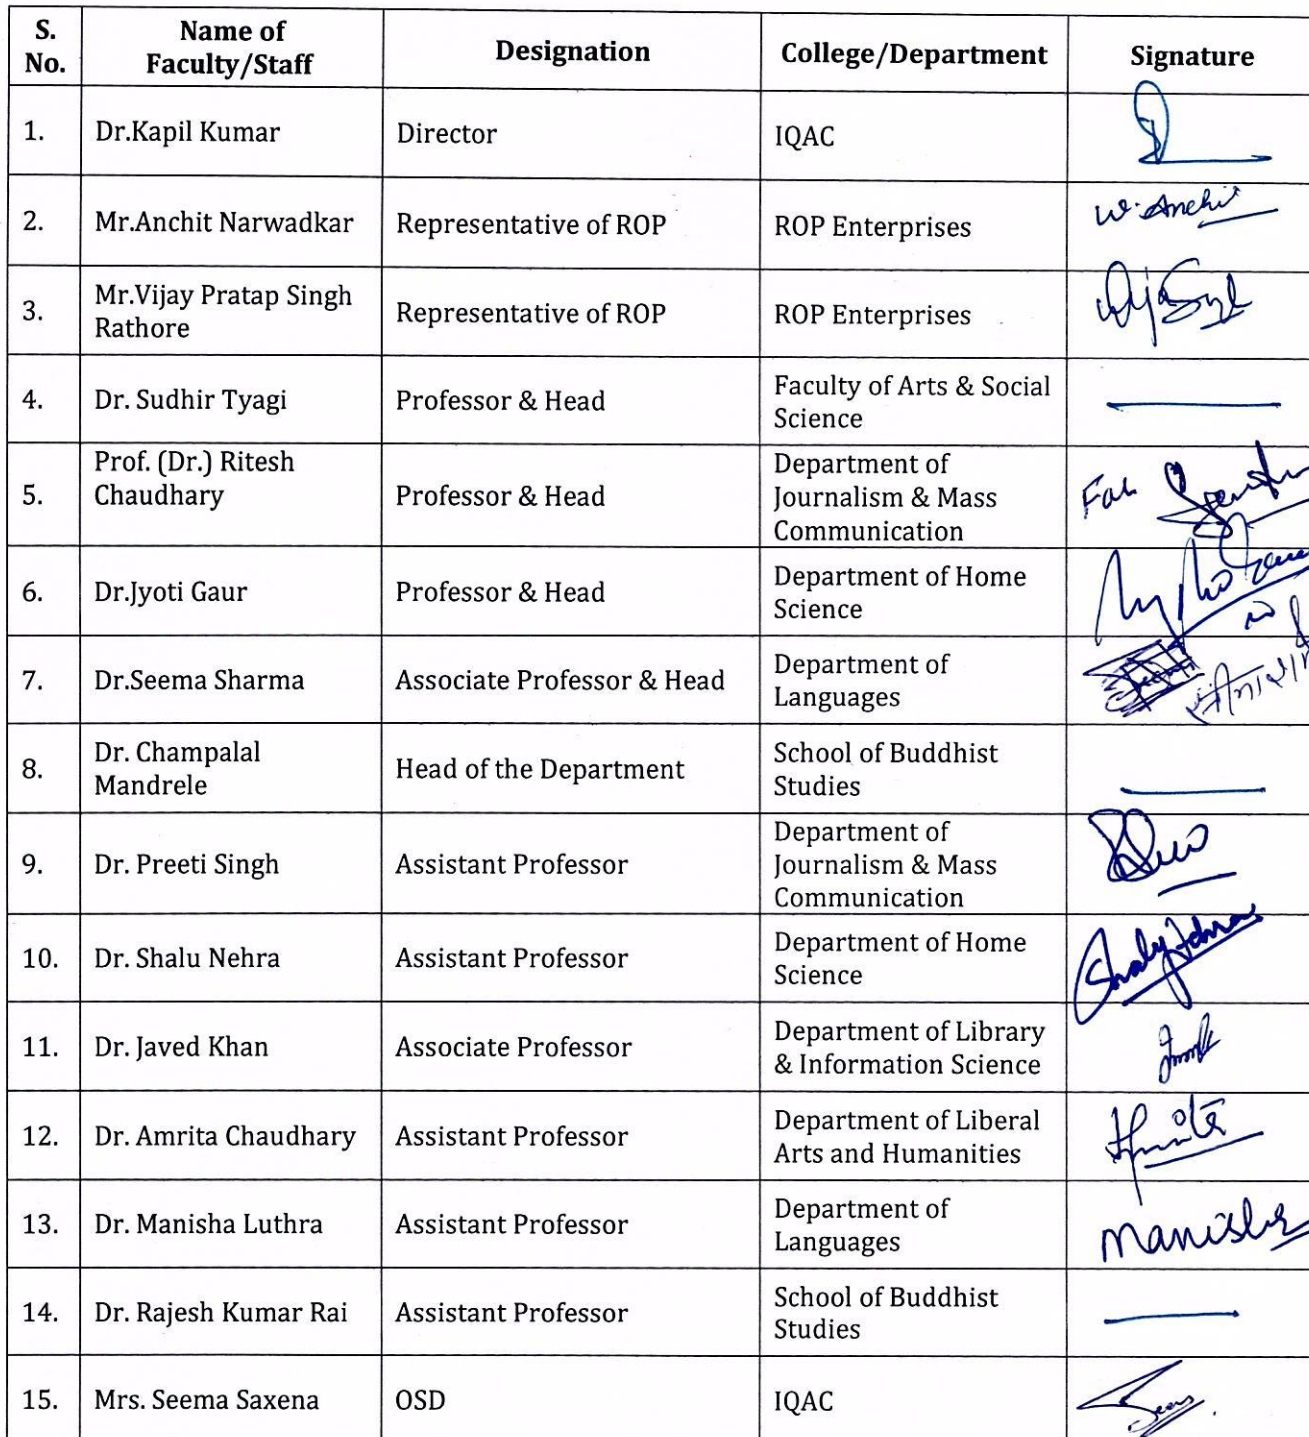 S. No. Name of Faculty/Staff Designation College/Department Signature
1. Dr.Kapil Kumar Director IQAC
2. Mr.Anchit Narwadkar Representative of ROP ROP Enterprises W. Anchit
3. Mr.Vijay Pratap Singh Rathore Representative of ROP ROP Enterprises
4. Dr. Sudhir Tyagi Professor & Head Faculty of Arts & Social Science
5. Prof. (Dr.) Ritesh Chaudhary Professor & Head Department of Journalism & Mass Communication
6. Dr.Jyoti Gaur Professor & Head Department of Home Science
7. Dr.Seema Sharma Associate Professor & Head Department of Languages
8. Dr. Champalal Mandrele Head of the Department School of Buddhist Studies
9. Dr. Preeti Singh Assistant Professor Department of Journalism & Mass Communication
10. Dr. Shalu Nehra Assistant Professor Department of Home Science
11. Dr. Javed Khan Associate Professor Department of Library & Information Science
12. Dr. Amrita Chaudhary Assistant Professor Department of Liberal Arts and Humanities
13. Dr. Manisha Luthra Assistant Professor Department of Languages Manisha
14. Dr. Rajesh Kumar Rai Assistant Professor School of Buddhist Studies
15. Mrs. Seema Saxena OSD IQAC